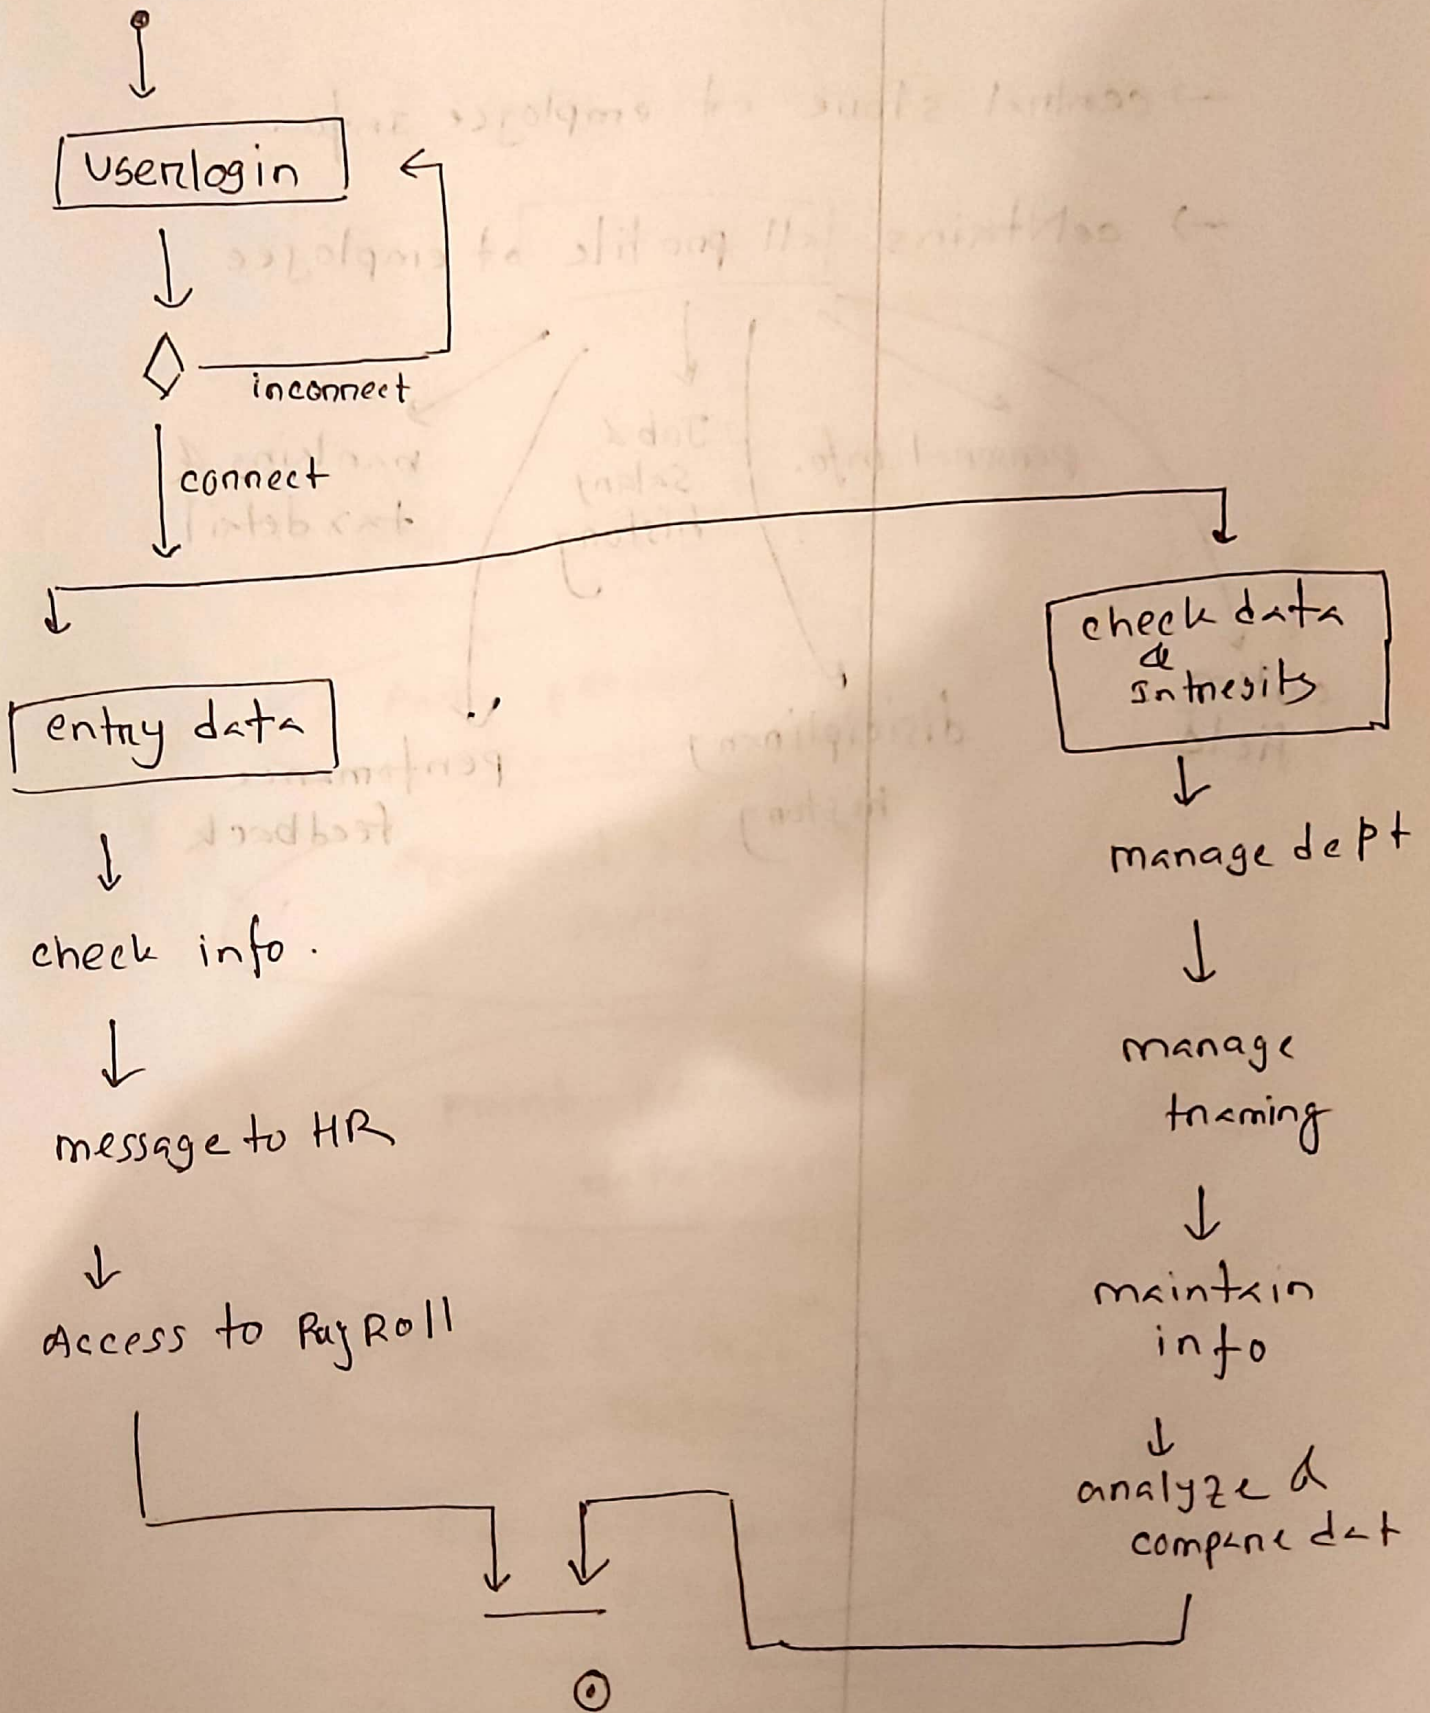 userlogin
inconnect
connect
entry data
check info.
message to HR
Access to PayRoll
check data
&
manage dept
manage
maintain
info
analyze &
compare dat